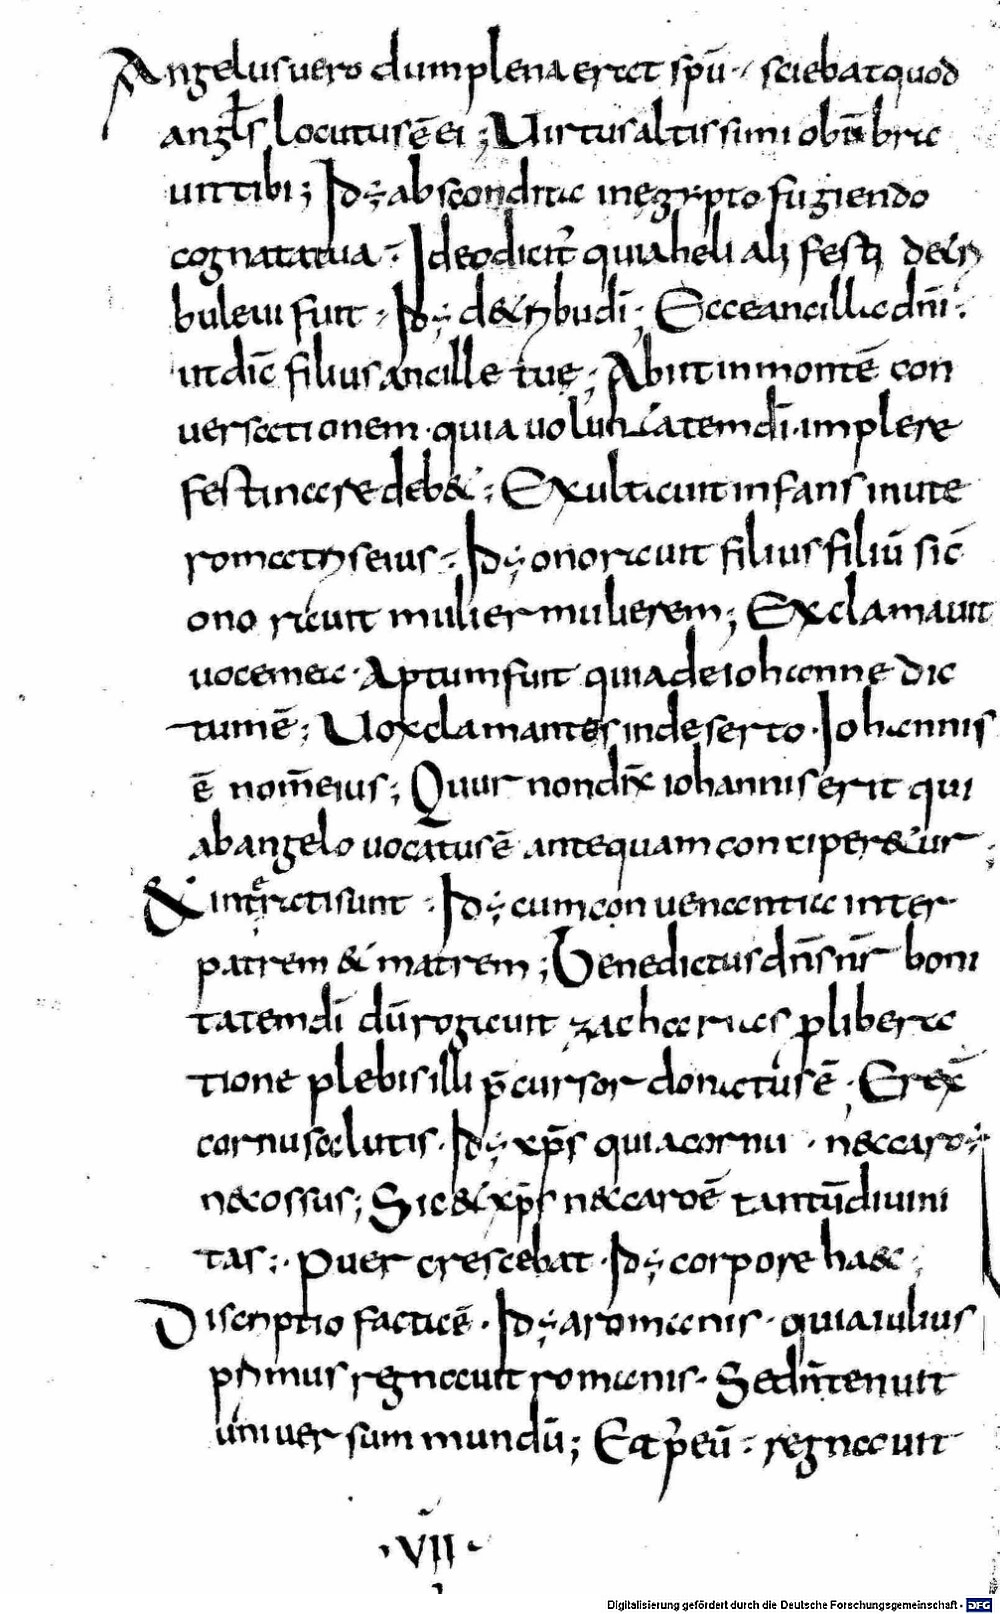 Angelus uero dum plena eret spū· sciebat quod
angls locutus ē ei ; Uirtus altissimi obūbra
uit tibi ; Id ÷ abscondita in egypto fugiendo
cognata tua · Ideo dicitr̄ quia heli alii festi de tri
bu leui fuit · Id ÷ de tribu dī ; Ecce ancilla dnī ·
ut dic̄ filius ancille tuę ; Abiit in montē con
uersationem · quia uoluntatem dī · implere
festinare deb& ; Exultauit infans in ute
ro matris eius · Id ÷ onorauit filius filiū sic̄
onorauit mulier mulierem ; Exclamauit
uoce mea · Aptum fuit quia de iohanne dic
tum ē ; Uox clamantes in deserto · Iohannis
ē nom̄ eius ; Quur non dix̄ iohannis erit qui
ab angelo uocatus ē antequam conciper&ur ;
& intrati sunt · Id ÷ cum conuenentia inter
patrem & matrem ; Benedictus dn̄s nr̄ boni
tatem dī dū rogauit zacharias p libera
tione plebis illi p̄cursor donatus ē · Erex̄
cornu salutis · Id ÷ xp̄s quia cornu · nec caro ÷
nec ossus ; Sic & xp̄s nec caro ē tantū diuini
tas ; · Puer crescebat · Id ÷ corpore hac ;
Discriptio facta ē · Id ÷ a romanis · quia iulius
primus regnauit romanis · Sed n̄ tenuit
uniuersum mundū ; Et p̄ eū · regnauit
· VII ·
Digitalisierung gefördert durch die Deutsche Forschungsgemeinschaft - DFG